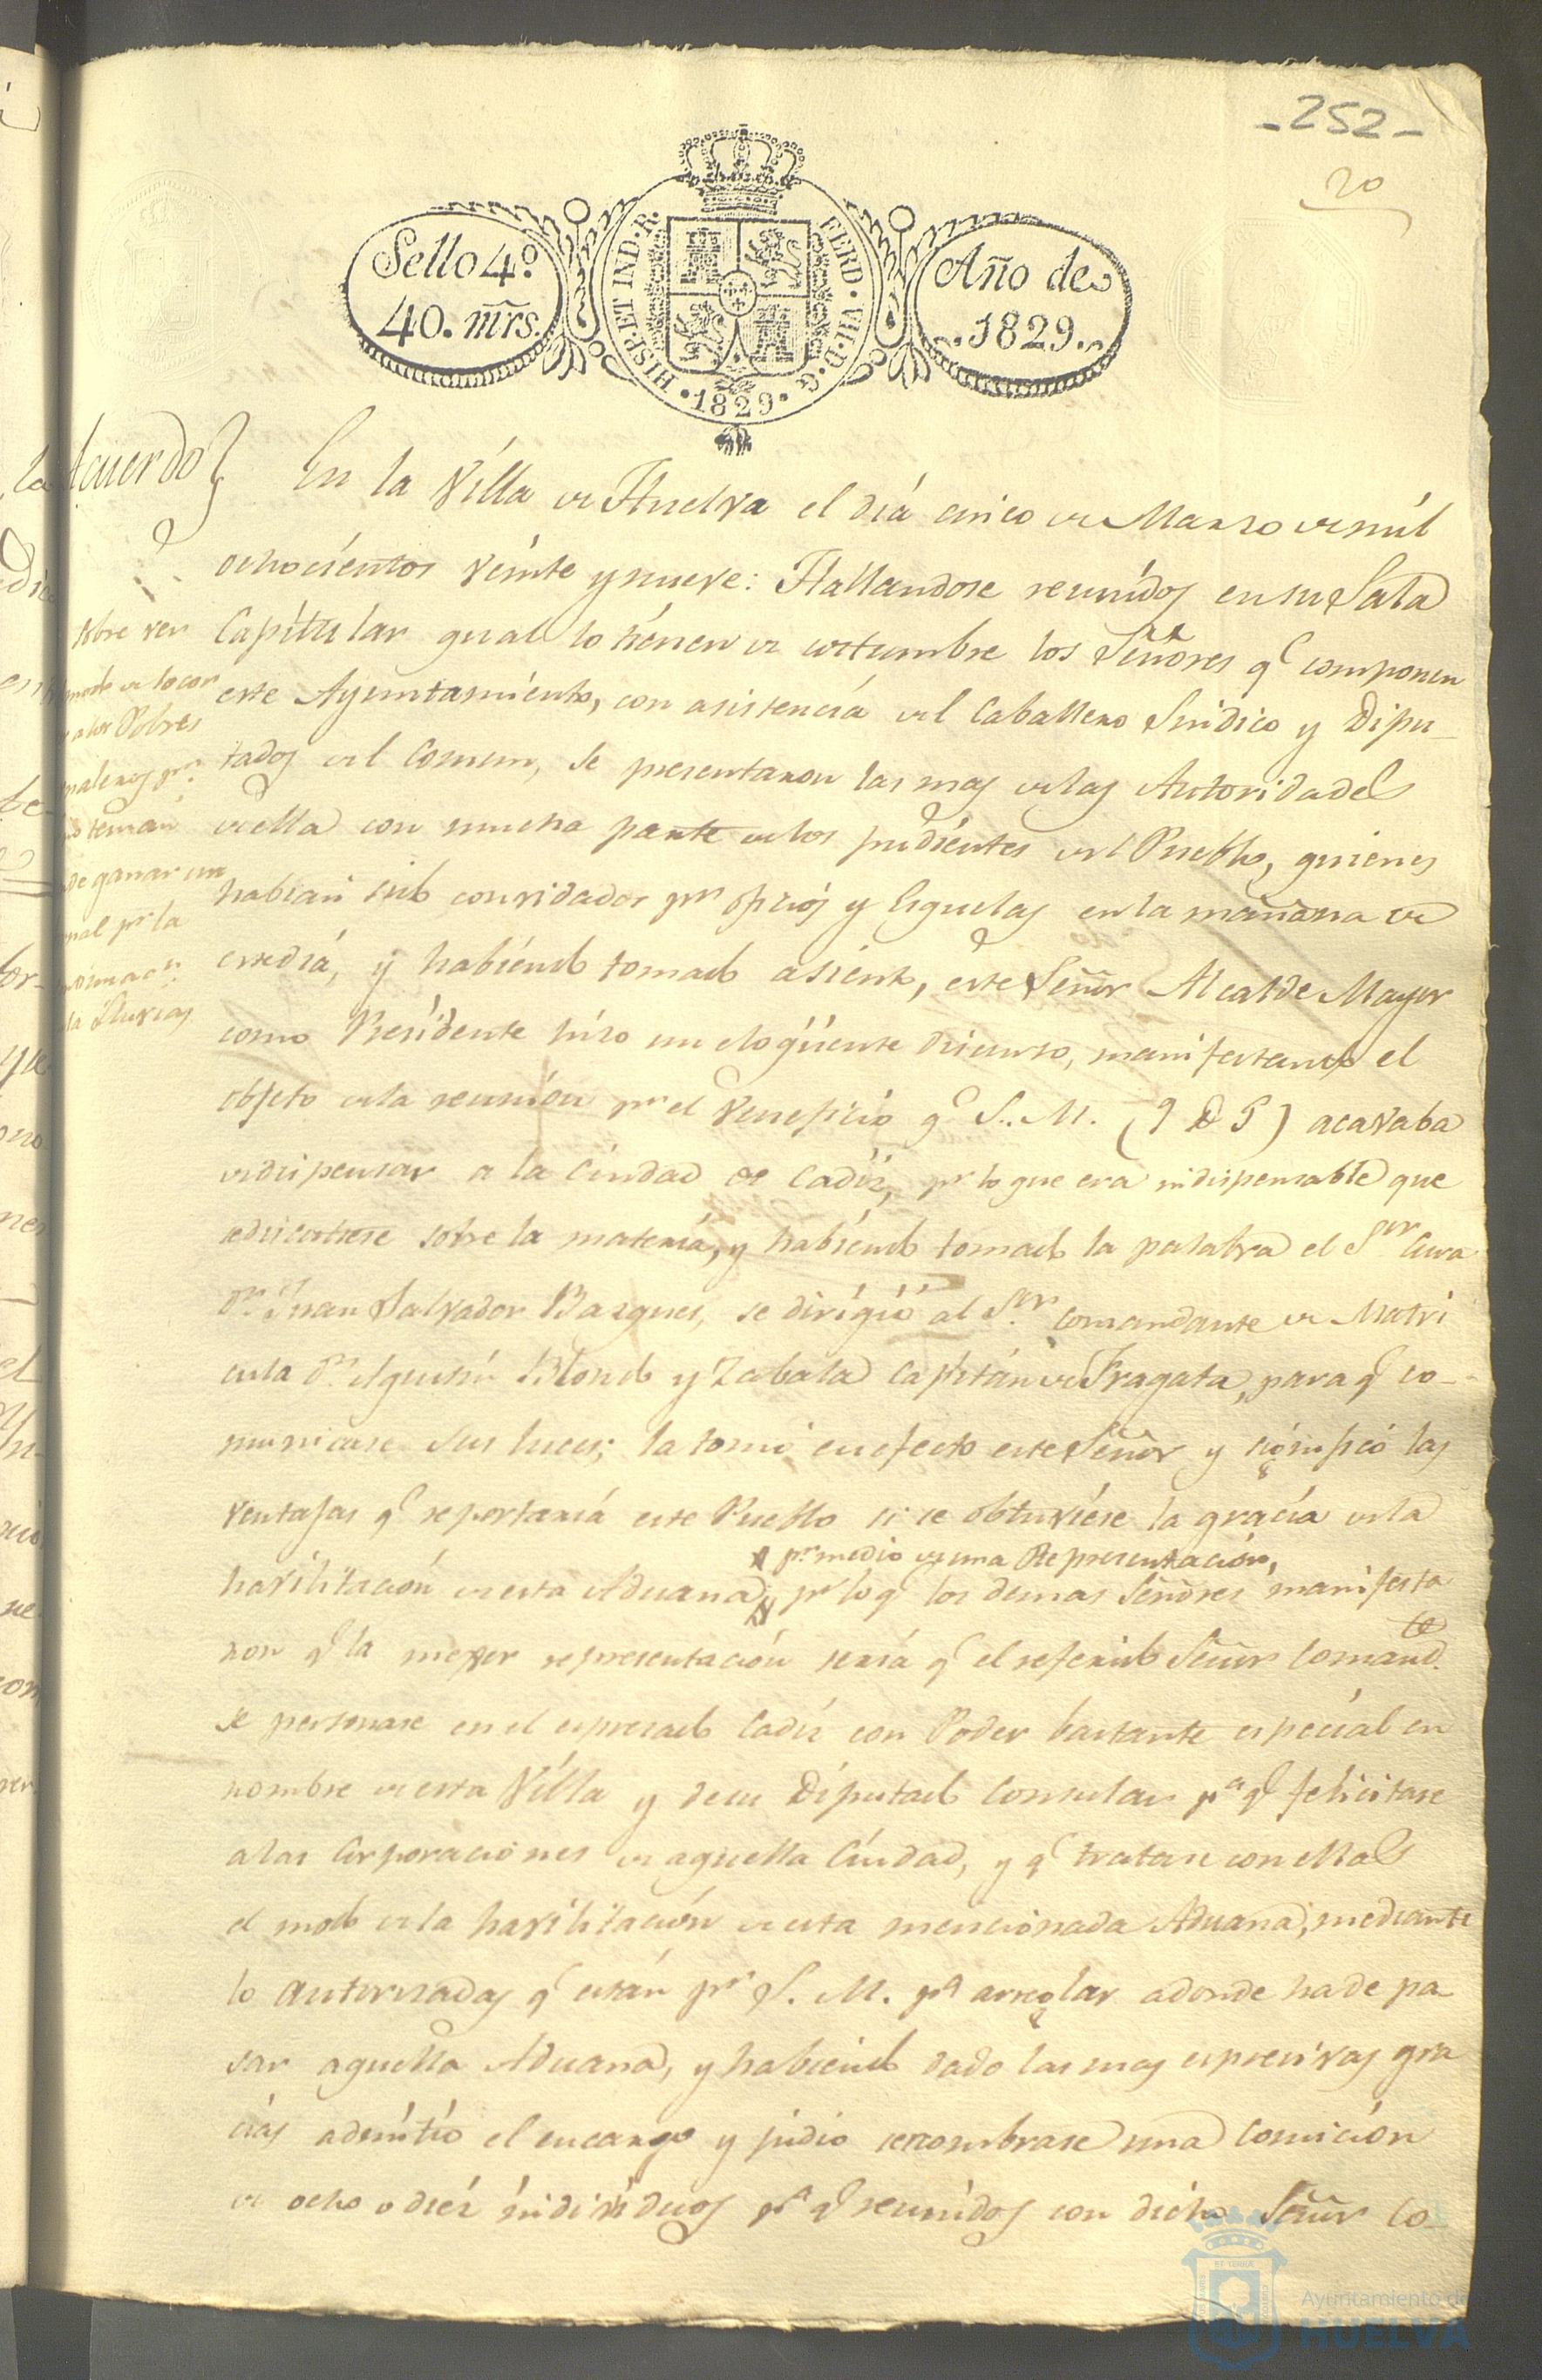 -252-
20
Sello 4º
40. mrs.
HISP. ET IND. R.
FERD. VII. D. G.
1829
Año de
1829.
Acuerdo
En la Villa de Huelva el día cinco de Marzo de mil
ochocientos veinte y nueve: Hallandose reunidos en su Sala
Capitular qual lo tienen de costumbre los Señores q.e componen
este Ayuntamiento, con asistencia del Caballero Sindico y Dipu-
tados del Comun, se presentaron las mas de las Autoridades
de ella con mucha parte de los pudientes del Pueblo, quienes
habian sido convidados p.r oficios y Esquelas en la mañana de
este dia, y habiendo tomado asiento, este Señor Alcalde Mayor
como Presidente hizo un eloqüente discurso, manifestando el
objeto de la reunión p.r el veneficio q.e S. M. (q D G) acavaba
de dispensar a la Ciudad de Cadiz, p.r lo que era indispensable que
se discutiese sobre la materia, y habiendo tomado la palabra el S.or Cura
D.n Juan Salvador Bazques, se dirigió al S.or Comandante de Matri
cula D.n Agustin Blondo y Zabala Capitán de Fragata, para q.e co-
municase sus luces; la tomó en efecto este Señor y significó las
ventajas q.e reportaria este Pueblo si se obtuviese la gracia de la
p.r medio de una Representación,
havilitación de esta Aduana, p.r lo q.e los demas Señores manifesta
ron q.e la mejor representación seria q.e el referido Señor Comand.te
se personase en el expresado Cadiz con Poder bastante especial en
nombre de esta Villa y de su Diputado Consular p.a q.e felicitase
a las Corporaciones de aquella Ciudad, y q.e tratase con ellas
el modo de la havilitación de esta mencionada Aduana, mediante
lo autorizadas q.e están p.r S. M. p.a arreglar adonde ha de pa-
sar aquella Aduana, y habiendo dado las mas expresivas gra
cias admitió el encargo y pidio se nombrase una Comición
de ocho o diez individuos p.a q.e reunidos con dicho Señor Co-
sobre ver
modo de socor
a los Pobres
p.r
tengan
de ganar un
p.r la
la Lluvias
Ayuntamiento de
HUELVA